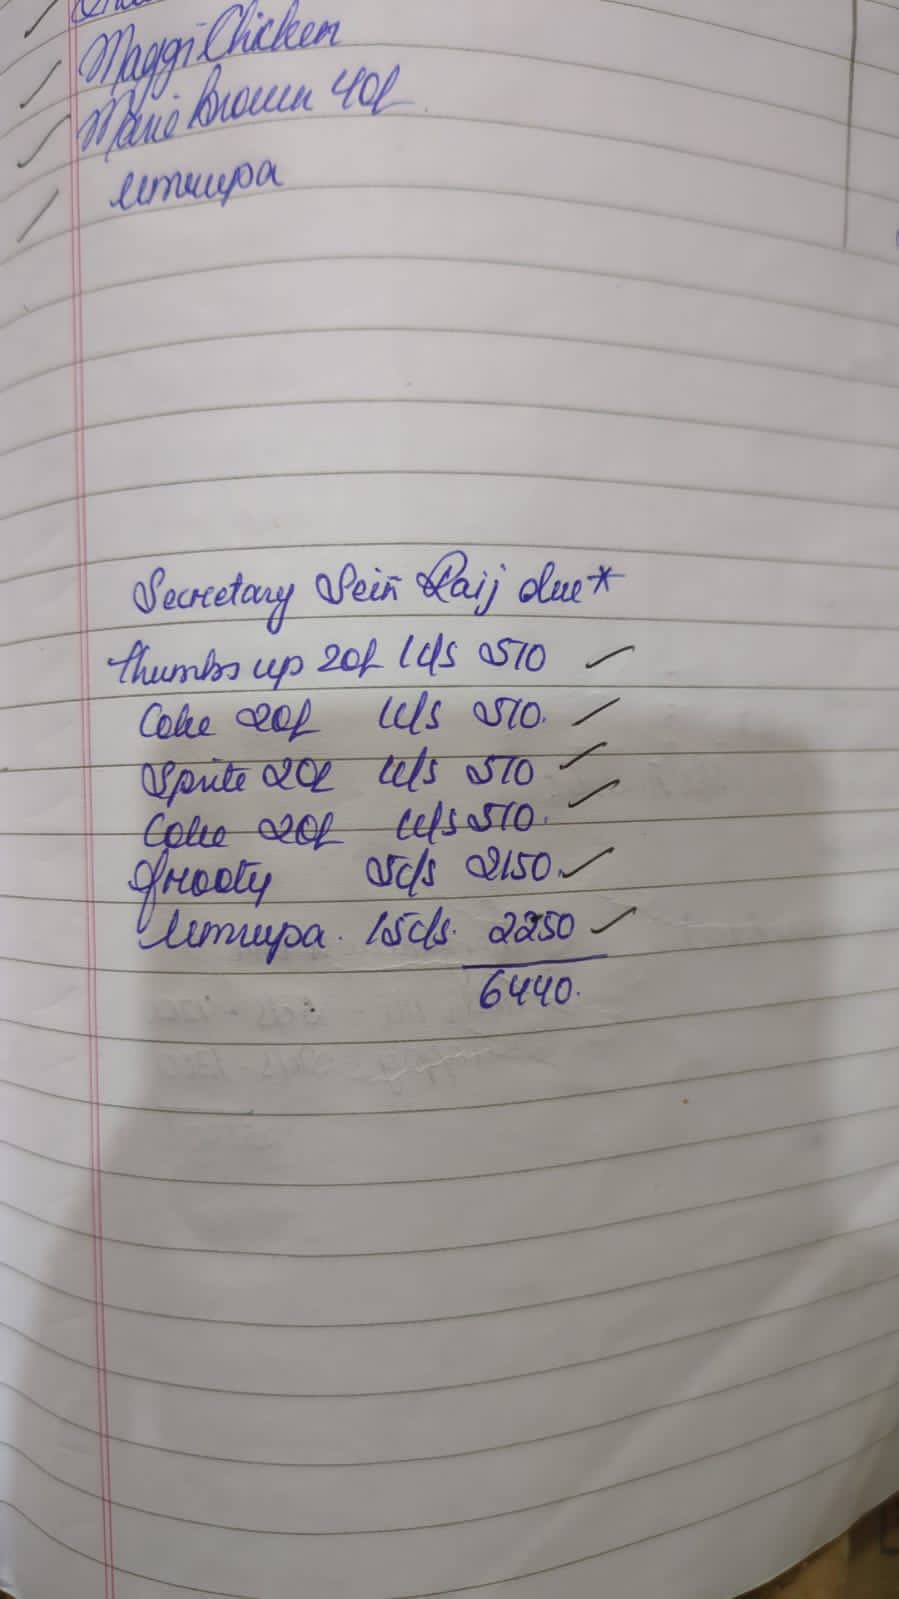 Maggi Chicken
Marie Brown 40/-
Umrupa
Secretary Sein Raij due*
Thumbs up 20/- 1c/s 510
Coke 20/- 1c/s 510.
Sprite 20/- 1c/s 510
Coke 20/- 1c/s 510.
frooty 5c/s 2150.
Umrupa. 15c/s. 2250
6440.